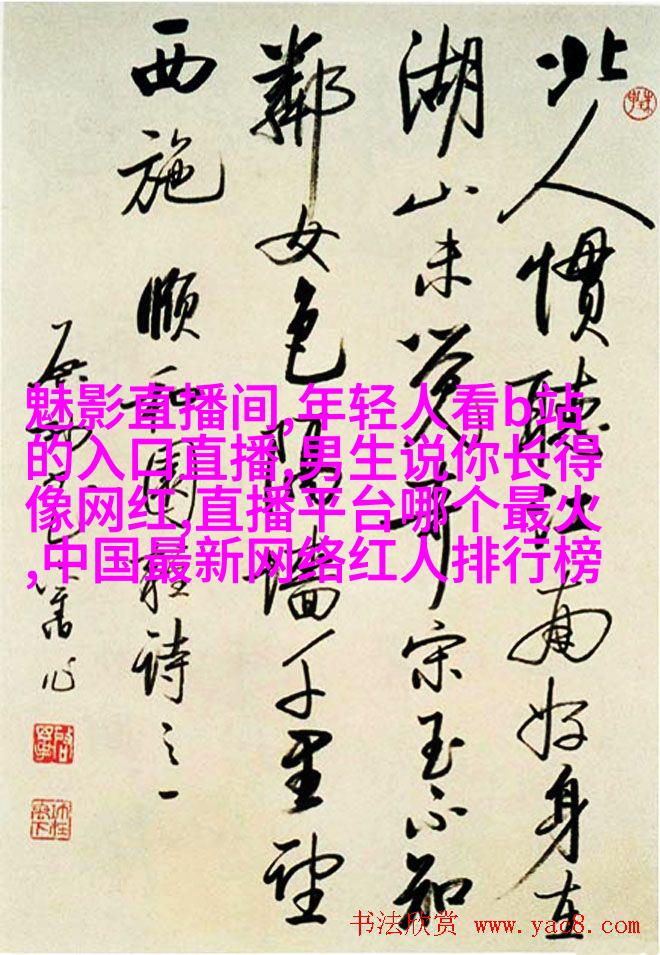 北人慣聽江南好身在
湖山未覺奇宋玉不知
鄰女色隔墻千里望
西施 頤和園雜詩之一
舊作
魅影直播间,年轻人看b站
的入口直播,男生说你长得
像网红,直播平台哪个最火
,中国最新网络红人排行榜
书法欣赏 www.yac8.com